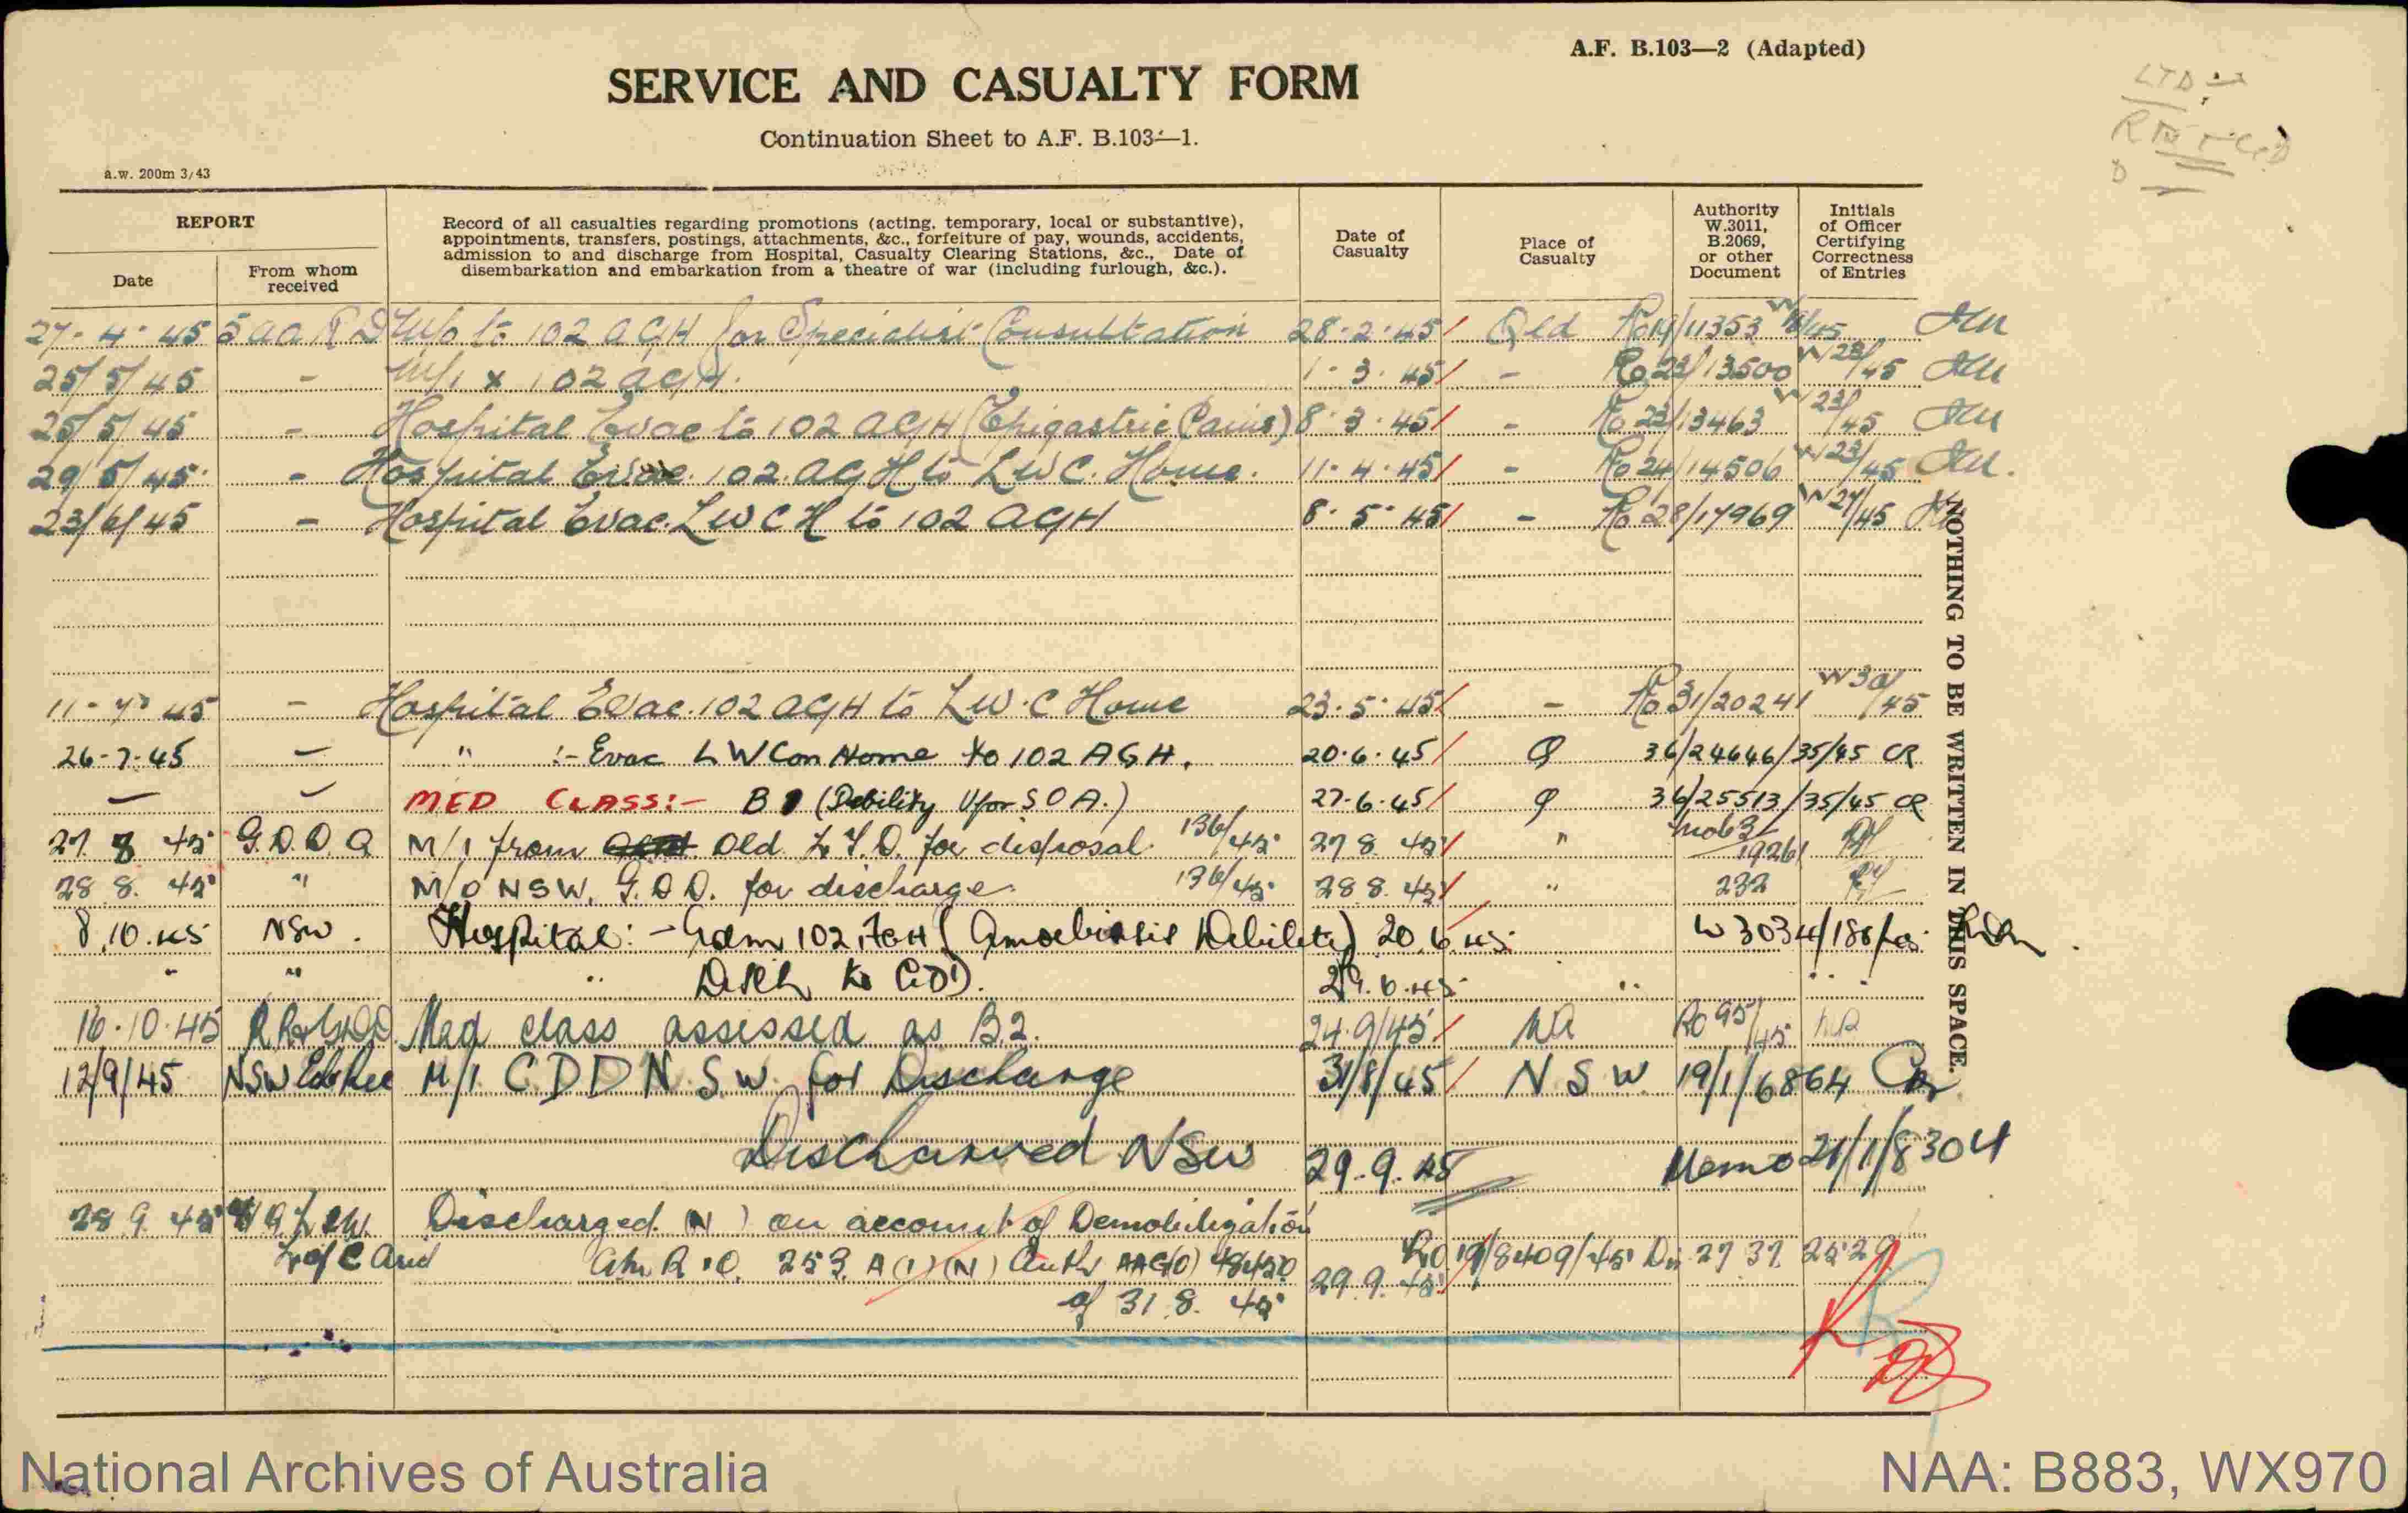 A.F. B.103—2 (Adapted)
SERVICE AND CASUALTY FORM
Continuation Sheet to A.F. B.103—1.
a.w. 200m 3/43
LTD
REPORT
Date
From whom received
Record of all casualties regarding promotions (acting, temporary, local or substantive),
appointments, transfers, postings, attachments, &c., forfeiture of pay, wounds, accidents,
admission to and discharge from Hospital, Casualty Clearing Stations, &c., Date of
disembarkation and embarkation from a theatre of war (including furlough, &c.).
Date of Casualty
Place of Casualty
Authority W.3011, B.2069, or other Document
Initials of Officer Certifying Correctness of Entries
27-4-45 5 AARD M/o to 102 AGH for Specialist Consultation 28-2-45 Qld Ro 19/11353
25/5/45 - M/1 x 102 AGH. 1-3-45 - Ro 23/13500 W23/45
25/5/45 - Hospital Evac to 102 AGH (Epigastric Pains) 8-3-45 - Ro 23/13463 W23/45
29/5/45 - Hospital Evac. 102 AGH to LWC. Home. 11-4-45 - Ro 24/14506 W23/45
23/6/45 - Hospital Evac. LWCH to 102 AGH 8-5-45 - Ro 28/17969 W27/45
11-7-45 - Hospital Evac. 102 AGH to LW.C Home 23-5-45 - Ro 31/20241 W30/45
26-7-45 - " :- Evac LW Con Home to 102 AGH. 20-6-45 Q 36/24646/35/45 CR
- - MED CLASS:- B (Debility for S.O.A.) 27-6-45 Q 36/25513/35/45 CR
27 8 45 G.D.D. Q M/1 from Qld L.T.D. for disposal 136/45 27 8. 45 " 19261
28 8. 45 " M/O NSW. G.D.D. for discharge. 136/45 28 8. 45 " 232
8.10.45 NSW. Hospital:- Adm 102 AGH (Amoebiasis Debility) 20.6.45 W3034/188/45
" " " Disch to GDD. 29.6.45 " " "
16-10-45 Med class assessed as B2. 24.9/45 Ro 95/45
12/9/45 NSW Ech Rec M/1. G D D N.S.W. for Discharge 31/8/45 N S W 19/1/6864
Discharged NSW 29-9-45 Memo 21/1/8304
28 9. 45 Discharged (N) on account of Demobilization
L of C Area AMR & O. 253. A(1)(N) Auth AAG(O) 48450 29 9. 45 Ro 19/8409/45 27 37 2529
of 31. 8. 45
NOTHING TO BE WRITTEN IN THIS SPACE.
National Archives of Australia
NAA: B883, WX970